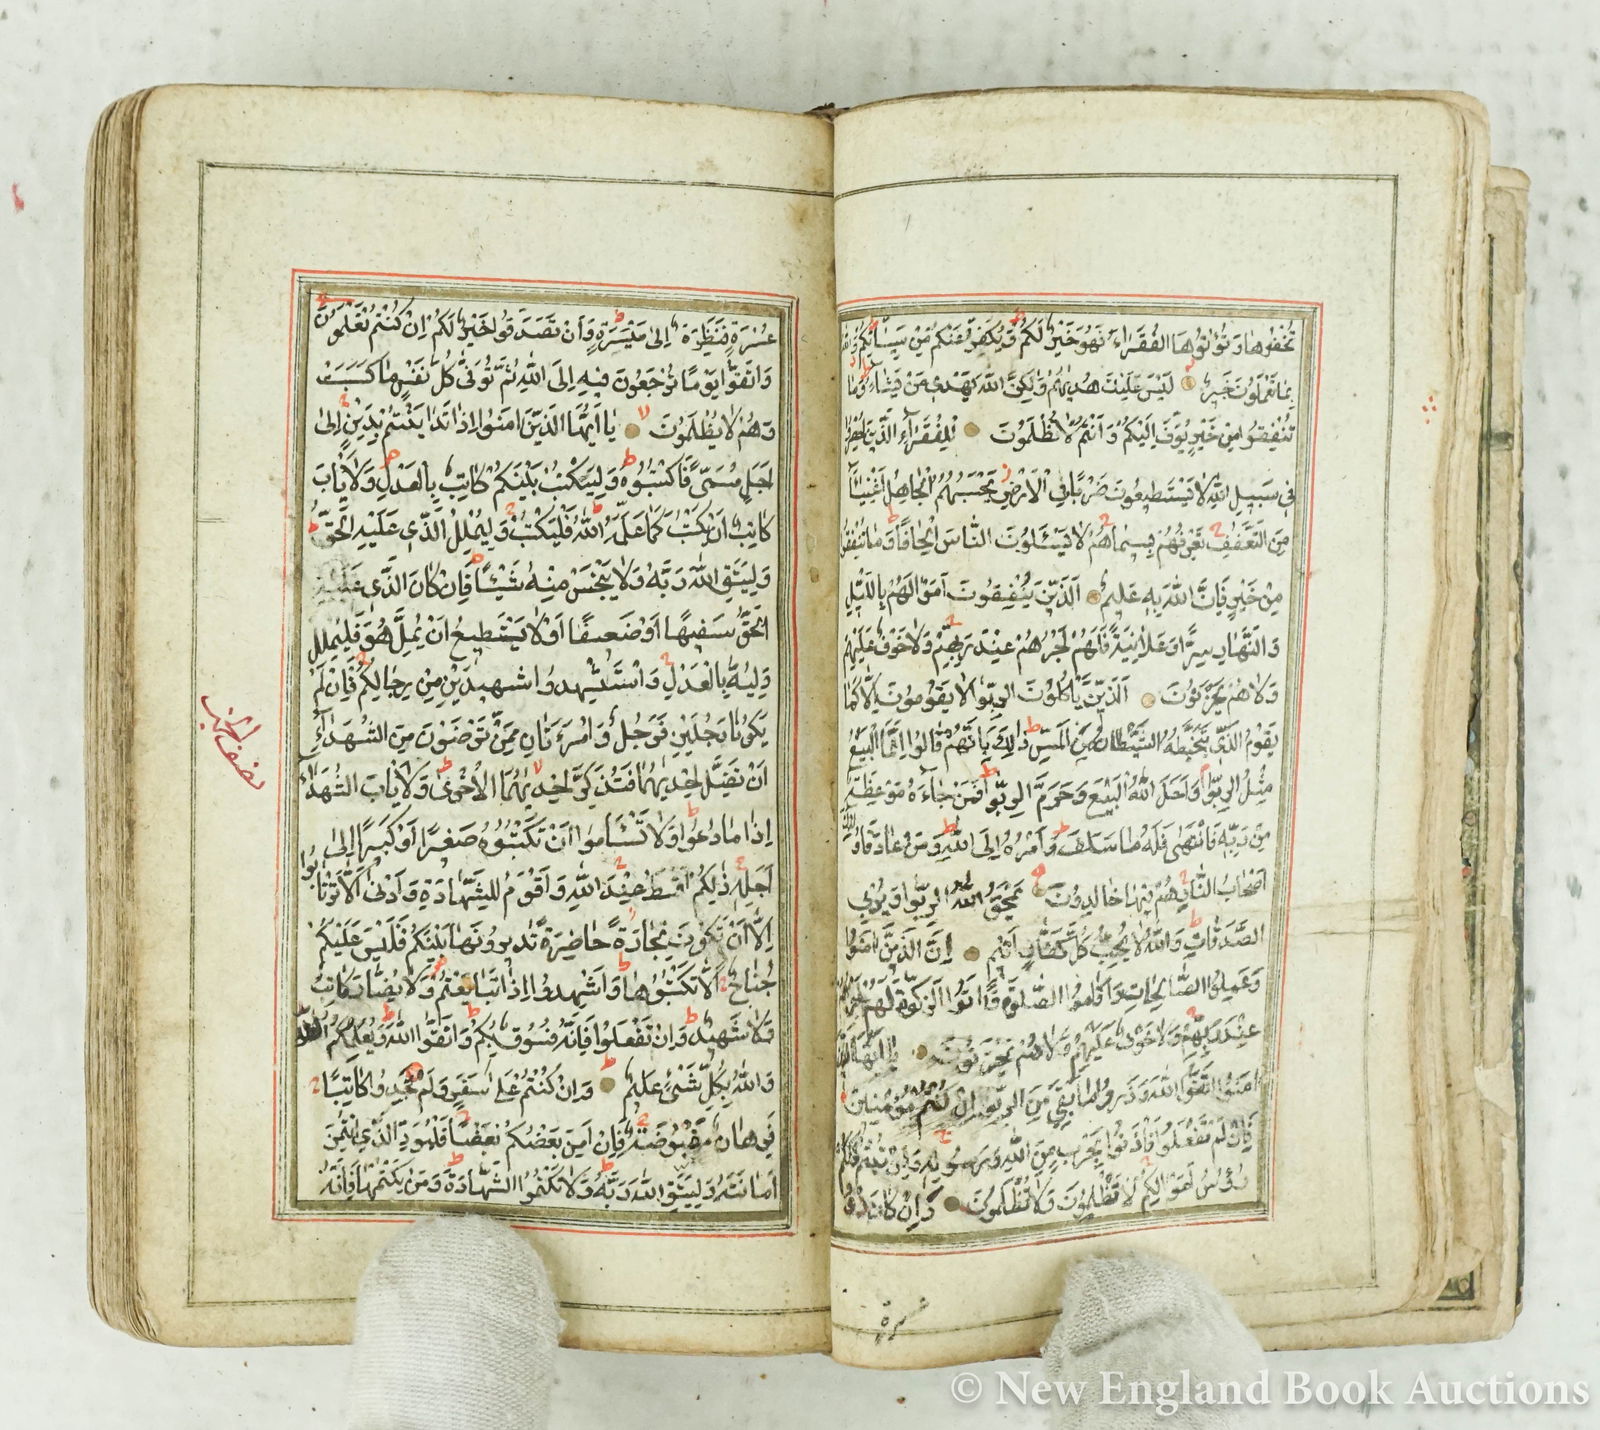 تُخْفُوهَا وَتُؤْتُوهَا الْفُقَرَاءَ فَهُوَ خَيْرٌ لَكُمْ وَيُكَفِّرُ عَنْكُمْ مِنْ سَيِّئَاتِكُمْ وَاللّٰهُ
بِمَا تَعْمَلُونَ خَبِيرٌ لَيْسَ عَلَيْكَ هُدٰيهُمْ وَلٰكِنَّ اللّٰهَ يَهْدِى مَنْ يَشَاءُ وَمَا
تُنْفِقُوا مِنْ خَيْرٍ يُوَفَّ اِلَيْكُمْ وَاَنْتُمْ لَا تُظْلَمُونَ لِلْفُقَرَاءِ الَّذِينَ اُحْصِرُوا
فِى سَبِيلِ اللّٰهِ لَا يَسْتَطِيعُونَ ضَرْبًا فِى الْاَرْضِ يَحْسَبُهُمُ الْجَاهِلُ اَغْنِيَاءَ
مِنَ التَّعَفُّفِ تَعْرِفُهُمْ بِسِيمَاهُمْ لَا يَسْئَلُونَ النَّاسَ اِلْحَافًا وَمَا تُنْفِقُوا
مِنْ خَيْرٍ فَاِنَّ اللّٰهَ بِهِ عَلِيمٌ اَلَّذِينَ يُنْفِقُونَ اَمْوَالَهُمْ بِاللَّيْلِ
وَالنَّهَارِ سِرًّا وَعَلَانِيَةً فَلَهُمْ اَجْرُهُمْ عِنْدَ رَبِّهِمْ وَلَا خَوْفٌ عَلَيْهِمْ
وَلَا هُمْ يَحْزَنُونَ اَلَّذِينَ يَاْكُلُونَ الرِّبٰوا لَا يَقُومُونَ اِلَّا كَمَا
يَقُومُ الَّذِى يَتَخَبَّطُهُ الشَّيْطَانُ مِنَ الْمَسِّ ذٰلِكَ بِاَنَّهُمْ قَالُوا اِنَّمَا الْبَيْعُ
مِثْلُ الرِّبٰوا وَاَحَلَّ اللّٰهُ الْبَيْعَ وَحَرَّمَ الرِّبٰوا فَمَنْ جَاءَهُ مَوْعِظَةٌ
مِنْ رَبِّهِ فَانْتَهٰى فَلَهُ مَا سَلَفَ وَاَمْرُهُ اِلَى اللّٰهِ وَمَنْ عَادَ فَاُولٰئِكَ
اَصْحَابُ النَّارِ هُمْ فِيهَا خَالِدُونَ يَمْحَقُ اللّٰهُ الرِّبٰوا وَيُرْبِى
الصَّدَقَاتِ وَاللّٰهُ لَا يُحِبُّ كُلَّ كَفَّارٍ اَثِيمٍ اِنَّ الَّذِينَ اٰمَنُوا
وَعَمِلُوا الصَّالِحَاتِ وَاَقَامُوا الصَّلٰوةَ وَاٰتَوُا الزَّكٰوةَ لَهُمْ اَجْرُهُمْ
عِنْدَ رَبِّهِمْ وَلَا خَوْفٌ عَلَيْهِمْ وَلَا هُمْ يَحْزَنُونَ يَا اَيُّهَا الَّذِينَ
اٰمَنُوا اتَّقُوا اللّٰهَ وَذَرُوا مَا بَقِىَ مِنَ الرِّبٰوا اِنْ كُنْتُمْ مُؤْمِنِينَ
فَاِنْ لَمْ تَفْعَلُوا فَاْذَنُوا بِحَرْبٍ مِنَ اللّٰهِ وَرَسُولِهِ وَاِنْ تُبْتُمْ فَلَكُمْ
رُؤُسُ اَمْوَالِكُمْ لَا تَظْلِمُونَ وَلَا تُظْلَمُونَ وَاِنْ كَانَ ذُو
عسرة
عُسْرَةٍ فَنَظِرَةٌ اِلٰى مَيْسَرَةٍ وَاَنْ تَصَدَّقُوا خَيْرٌ لَكُمْ اِنْ كُنْتُمْ تَعْلَمُونَ
وَاتَّقُوا يَوْمًا تُرْجَعُونَ فِيهِ اِلَى اللّٰهِ ثُمَّ تُوَفّٰى كُلُّ نَفْسٍ مَا كَسَبَتْ
وَهُمْ لَا يُظْلَمُونَ يَا اَيُّهَا الَّذِينَ اٰمَنُوا اِذَا تَدَايَنْتُمْ بِدَيْنٍ اِلٰى
اَجَلٍ مُسَمًّى فَاكْتُبُوهُ وَلْيَكْتُبْ بَيْنَكُمْ كَاتِبٌ بِالْعَدْلِ وَلَا يَاْبَ
كَاتِبٌ اَنْ يَكْتُبَ كَمَا عَلَّمَهُ اللّٰهُ فَلْيَكْتُبْ وَلْيُمْلِلِ الَّذِى عَلَيْهِ الْحَقُّ
وَلْيَتَّقِ اللّٰهَ رَبَّهُ وَلَا يَبْخَسْ مِنْهُ شَيْئًا فَاِنْ كَانَ الَّذِى عَلَيْهِ
الْحَقُّ سَفِيهًا اَوْ ضَعِيفًا اَوْ لَا يَسْتَطِيعُ اَنْ يُمِلَّ هُوَ فَلْيُمْلِلْ
وَلِيُّهُ بِالْعَدْلِ وَاسْتَشْهِدُوا شَهِيدَيْنِ مِنْ رِجَالِكُمْ فَاِنْ لَمْ
يَكُونَا رَجُلَيْنِ فَرَجُلٌ وَامْرَاَتَانِ مِمَّنْ تَرْضَوْنَ مِنَ الشُّهَدَاءِ
اَنْ تَضِلَّ اِحْدٰيهُمَا فَتُذَكِّرَ اِحْدٰيهُمَا الْاُخْرٰى وَلَا يَاْبَ الشُّهَدَاءُ
اِذَا مَا دُعُوا وَلَا تَسْئَمُوا اَنْ تَكْتُبُوهُ صَغِيرًا اَوْ كَبِيرًا اِلٰى
اَجَلِهِ ذٰلِكُمْ اَقْسَطُ عِنْدَ اللّٰهِ وَاَقْوَمُ لِلشَّهَادَةِ وَاَدْنٰى اَلَّا تَرْتَابُوا
اِلَّا اَنْ تَكُونَ تِجَارَةً حَاضِرَةً تُدِيرُونَهَا بَيْنَكُمْ فَلَيْسَ عَلَيْكُمْ
جُنَاحٌ اَلَّا تَكْتُبُوهَا وَاَشْهِدُوا اِذَا تَبَايَعْتُمْ وَلَا يُضَارَّ كَاتِبٌ
وَلَا شَهِيدٌ وَاِنْ تَفْعَلُوا فَاِنَّهُ فُسُوقٌ بِكُمْ وَاتَّقُوا اللّٰهَ وَيُعَلِّمُكُمُ اللّٰهُ
وَاللّٰهُ بِكُلِّ شَىْءٍ عَلِيمٌ وَاِنْ كُنْتُمْ عَلٰى سَفَرٍ وَلَمْ تَجِدُوا كَاتِبًا
فَرِهَانٌ مَقْبُوضَةٌ فَاِنْ اَمِنَ بَعْضُكُمْ بَعْضًا فَلْيُؤَدِّ الَّذِى اؤْتُمِنَ
اَمَانَتَهُ وَلْيَتَّقِ اللّٰهَ رَبَّهُ وَلَا تَكْتُمُوا الشَّهَادَةَ وَمَنْ يَكْتُمْهَا فَاِنَّهُ
نصف الحزب
© New England Book Auctions